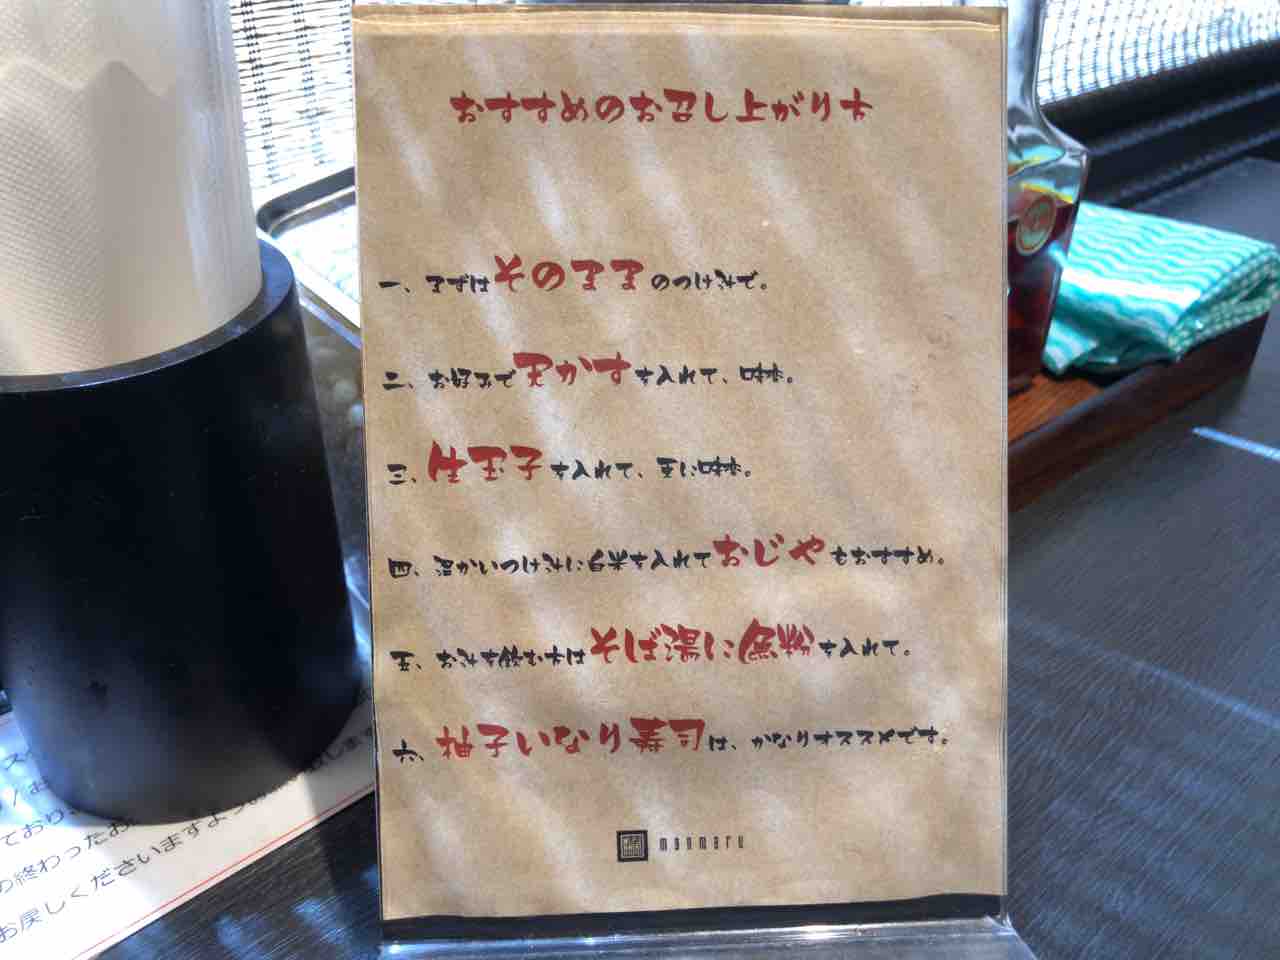 おすすめのお召し上がり方
一、まずはそのままのつけ汁で。
二、お好みで天かすを入れて、味変。
三、生玉子を入れて、更に味変。
四、温かいつけ汁に白米を入れておじやもおすすめ。
五、お汁を飲む方はそば湯に魚粉を入れて。
六、柚子いなり寿司は、かなりオススメです。
manmaru
ており
の終わったお
お戻しくださいますよう
致します